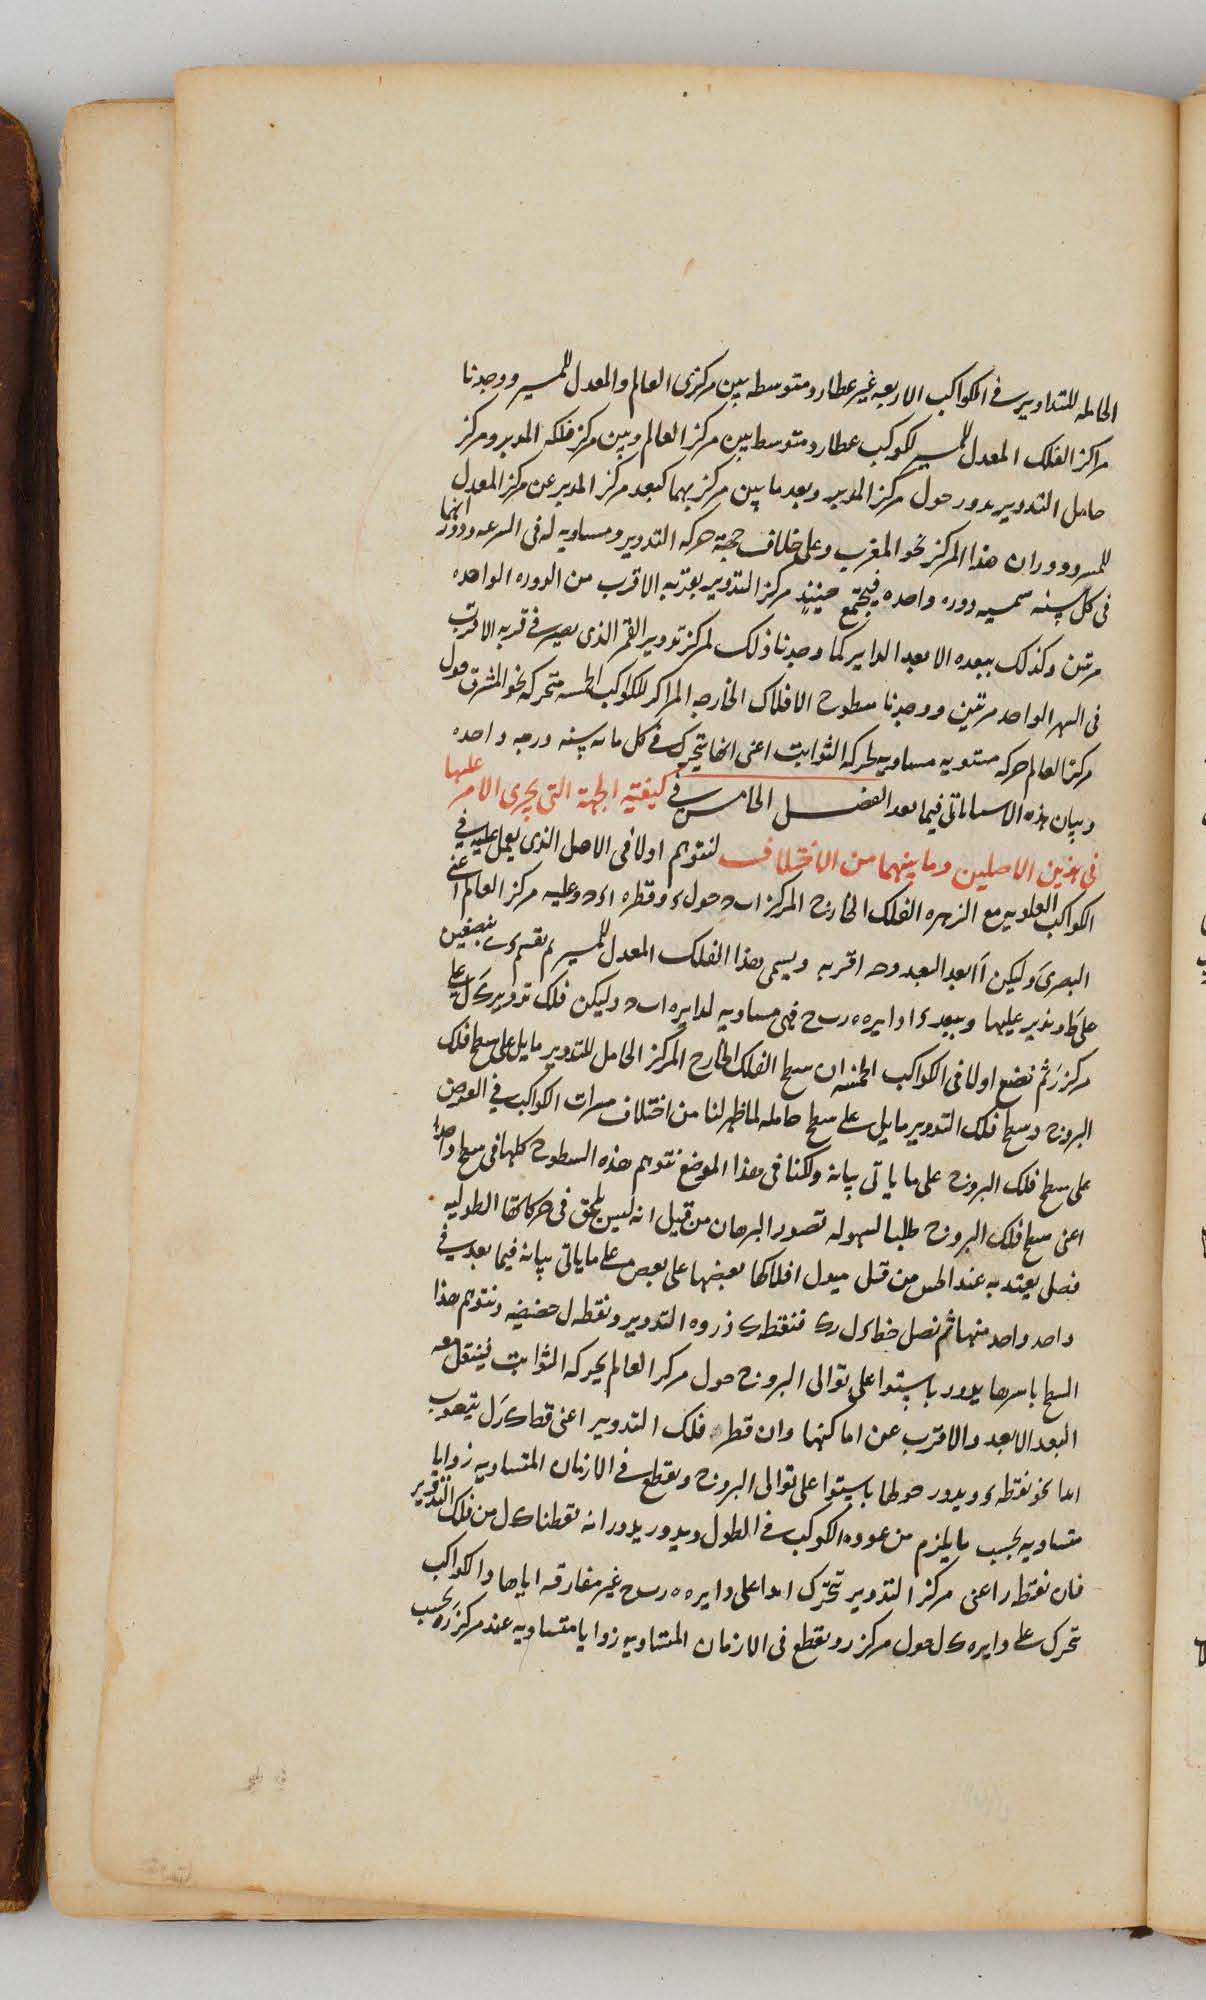 الحامله للتداوير في الكواكب الاربعه غير عطارد متوسطه بين مركزى العالم والمعدل للمسير ووجدنا
مراكز الفلك المعدل للمسير لكوكب عطارد متوسط بين مركز العالم وبين مركز فلكه المدير ومركز
حامل التدوير يدور حول مركز المدير وبعد ما بين مركزيهما كبعد مركز المدير عن مركز المعدل
للمسير ودوران هذا المركز نحو المغرب وعلى خلاف جهة حركه التدوير ومساويه له في السرعه ودورانهما
في كل سنه شمسيه دوره واحده فيجتمع حينئذٍ مركز التدوير بعد به الاقرب من الدوره الواحده
مرتين وكذلك ببعده الابعد الدايره كما وجدنا ذلك لمركز تدوير القمر الذى يصير في قربه الاقرب
في الشهر الواحد مرتين ووجدنا سطوح الافلاك الخارجه المراكز للكواكب الخمسه متحركه نحو المشرق حول
مركز العالم حركه مستويه مساويه لحركه الثوابت اعنى انها تتحرك في كل مايه سنه درجه واحده
وبيان هذه الاشيا ياتى فيما بعد الفصـــل الخامس في كيفيه الجهة التى يجرى الامر عليها
في هذين الاصلين وما بينهما من الاختلاف لنتوهم اولا في الاصل الذى يعمل عليه في
الكواكب العلويه مع الزهره الفلك الخارج المركز اب ج حول ء وقطره اء ج وعليه مركز العالم اعنى
البصرى وليكن ا ابعد البعد وج اقربه ويسمى هذا الفلك المعدل للمسير ثم نقسم ء ه بنصفين
على ط وندير عليها وببعد ء ا دايره ه ر ح فهى مساويه لدايره اب ج وليكن فلك تدوير ك ل على
مركز ر ثم نضع اولا في الكواكب الخمسه ان سطح الفلك الخارج المركز الحامل للتدوير مايل على سطح فلك
البروج وسطح فلك التدوير مايل على سطح حامله لما ظهر لنا من اختلاف مسيرات الكواكب في العرض
على سطح فلك البروج على ما ياتى بيانه ولكنا في هذا الموضع نتوهم هذه السطوح كلها في سطح واحد
اعنى سطح فلك البروج طلبا لسهوله تصور البرهان من قبل انه ليس يلحق في حركاتها الطوليه
فصل يعتد به عند الحس من قبل ميول افلاكها بعضها على بعض على ما ياتى بيانه فيما بعد في
واحد واحد منها ثم نصل خطا ء ل ر ك فنقطه ك ذروه التدوير ونقطه ل حضيضه ونتوهم هذا
السطح باسرها يدور باستوا على توالى البروج حول مركز العالم بحركه الثوابت فينتقل معه
البعد الابعد والاقرب عن اماكنها وان قطر فلك التدوير اعنى قطر ك ر ل يتصوب
ابدا نحو نقطه ء ويدور حولها باستوا على توالى البروج ويقطع في الازمان المتساويه زوايا
متساويه بحسب ما يلزم من عوده الكوكب في الطول ويدور بدورانه نقطتا ك ل من فلك التدوير
فان نقطه ر اعنى مركز التدوير تتحرك ابدا على دايره ه ر ح غير مفارقه اياها والكواكب
تتحرك على دايره ك ل حول مركز ر ويقطع في الازمان المتساويه زوايا متساويه عند مركز ر بحسب